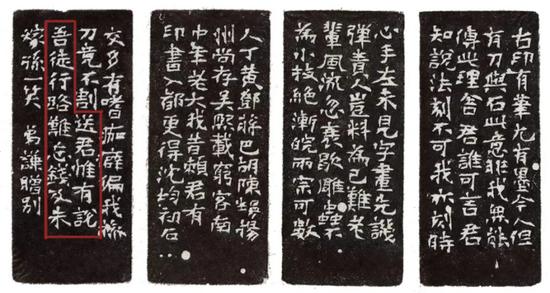 古印有筆尤有墨今人但
有刀與石此意非我無能
傳此理舍君誰可言君
知說法刻不可我亦刻時
心手左未見字畫先譏
彈責人豈料為己難老
輩風流忽衰歇雕蟲不
為小技絕浙皖兩宗可數
人丁黃鄧蔣巴胡陳揚
州尚存吳熙載窮客南
中年老大我昔賴君有
印書入都更得沈均初石
交多有嗜痂癖偏我操
刀竟不割送君惟有說
吾徒行路難忘錢及朱
稼孫一笑 謙贈別